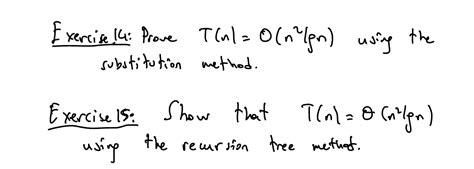 Exercise 14: Prove T(n) = O(n²lgn) using the
substitution method.
Exercise 15: Show that T(n) = Θ(n²lgn)
using the recursion tree method.